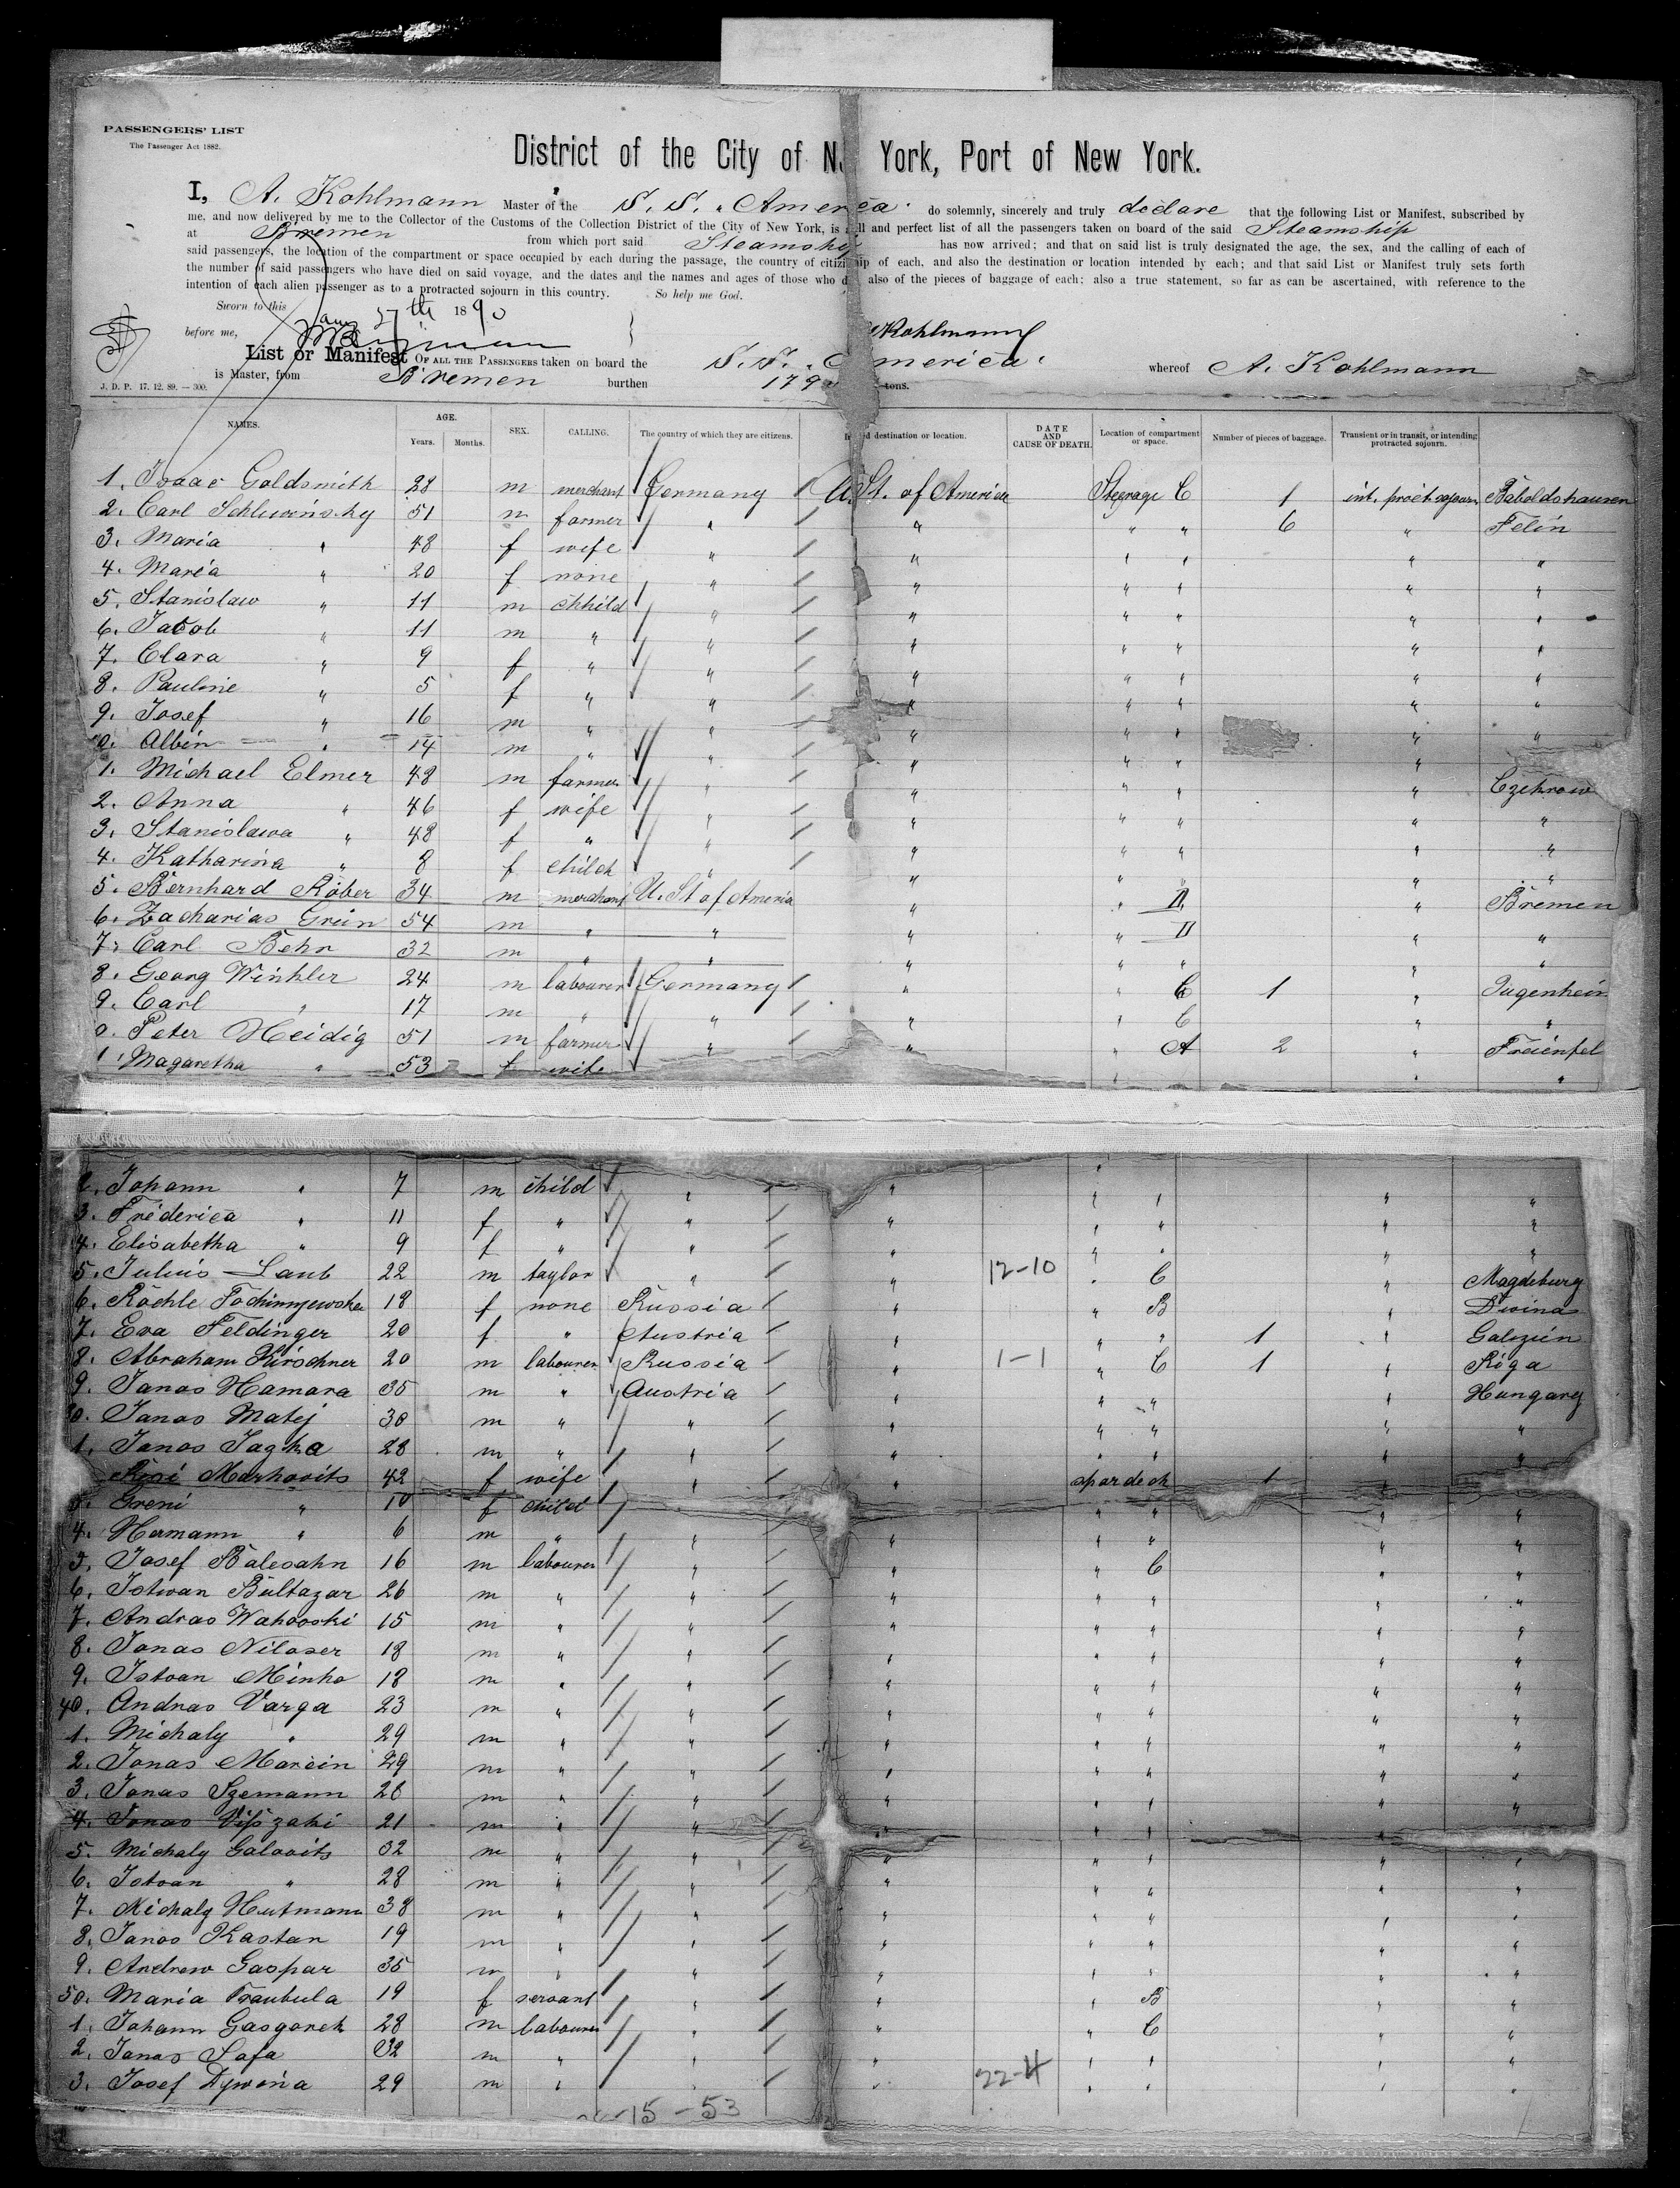 PASSENGERS' LIST
The Passenger Act 1882.
District of the City of N York, Port of New York.
I, A. Kohlmann Master of the S. S. "America" do solemnly, sincerely and truly declare that the following List or Manifest, subscribed by
me, and now delivered by me to the Collector of the Customs of the Collection District of the City of New York, is a ll and perfect list of all the passengers taken on board of the said Steamship
at Bremen from which port said Steamship has now arrived; and that on said list is truly designated the age, the sex, and the calling of each of
said passengers, the location of the compartment or space occupied by each during the passage, the country of citiz ip of each, and also the destination or location intended by each; and that said List or Manifest truly sets forth
the number of said passengers who have died on said voyage, and the dates and the names and ages of those who d also of the pieces of baggage of each: also a true statement, so far as can be ascertained, with reference to the
intention of each alien passenger as to a protracted sojourn in this country. So help me God.
Sworn to this 27th 1890
before me, Kohlmann
List or Manifest OF ALL THE PASSENGERS taken on board the S. S. "America" whereof A. Kohlmann
is Master, from Bremen burthen 179 tons.
J. D. P. 17. 12. 89. — 300.
NAMES. AGE. Years. Months. SEX. CALLING. The country of which they are citizens. In d destination or location. DATE AND CAUSE OF DEATH. Location of compartment or space. Number of pieces of baggage. Transient or in transit, or intending protracted sojourn.
1. Isaac Goldsmith 28 m merchant Germany U. St. of America Steerage C 1 int. proct. sojourn Baboldshausen
2. Carl Schlewinsky 51 m farmer " " " " 6 " Felin
3. Maria " 48 f wife " " " " " "
4. Maria " 20 f none " " " " " "
5. Stanislaw " 11 m chhild " " " " " "
6. Jacob " 11 m " " " " " " "
7. Clara " 9 f " " " " " " "
8. Pauline " 5 f " " " " " " "
9. Josef " 16 m " " " " " " "
0. Albin " 14 m " " " " " "
1. Michael Elmer 48 m farmer " " " " " Czekrow
2. Anna " 46 f wife " " " " " "
3. Stanislawa " 48 f " " " " " " "
4. Katharina " 8 f child " " " " " "
5. Bernhard Röber 34 m merchant U. St of America " " II " Bremen
6. Zacharias Grün 54 m " " " " II " "
7. Carl Behr 32 m " " " " " " "
8. Georg Winkler 24 m labourer Germany " " C 1 " Jugenheim
9. Carl " 17 m " " " " C " "
0. Peter Heidig 51 m farmer " " " A 2 " Freienfel
1. Magaretha " 53 f wife " "
2. Johann " 7 m child " " " " " "
3. Fréderica " 11 f " " " " " " "
4. Elisabetha " 9 f " " " " " " "
5. Julius Laub 22 m taylor " " 12-10 " C " Magdeburg
6. Röchle 18 f none Russia " " B " Dwina
7. Eva Feldinger 20 f " Austria " " " 1 " Galizien
8. Abraham Kirschner 20 m labourer Russia " 1-1 " C 1 " Riga
9. Janos Hamara 35 m " Austria " " " " Hungary
0. Janos Matej 30 m " " " " " " "
1. Janos Jagka 28 m " " " " " " "
Markovits 42 f wife " " spardeck 1 " "
3. Greni " 10 f child " " " "
4. Hermann " 6 m " " " " " " "
5. Josef Balesahn 16 m labourer " " " C " "
6. Istwan Bultazar 26 m " " " " " " "
7. Andras Wahovski 15 m " " " " " " "
8. Janos Niloser 18 m " " " " " " "
9. Istvan Minko 18 m " " " " " " "
40. Andras Varga 23 m " " " " " " "
1. Michaly " 29 m " " " " " " "
2. Janos Marcin 29 m " " " " " " "
3. Janos Szemann 28 m " " " " " " "
4. Janos Vißzaki 21 m " " " " " "
5. Michaly Galovits 32 m " " " " " " "
6. Istvan " 28 m " " " " " " "
7. Michaly Hutmann 38 m " " " " " " "
8. Janos Kastan 19 m " " " " " " "
9. Andrew Gaspar 35 m " " " " " " "
50. Maria Traubula 19 f servant " " " B " "
1. Johann Gasgorek 28 m labourer " " " C " "
2. Janos Safa 32 m " " " " " " "
3. Josef Dywina 29 m " " " 22-4 " " " "
15-53